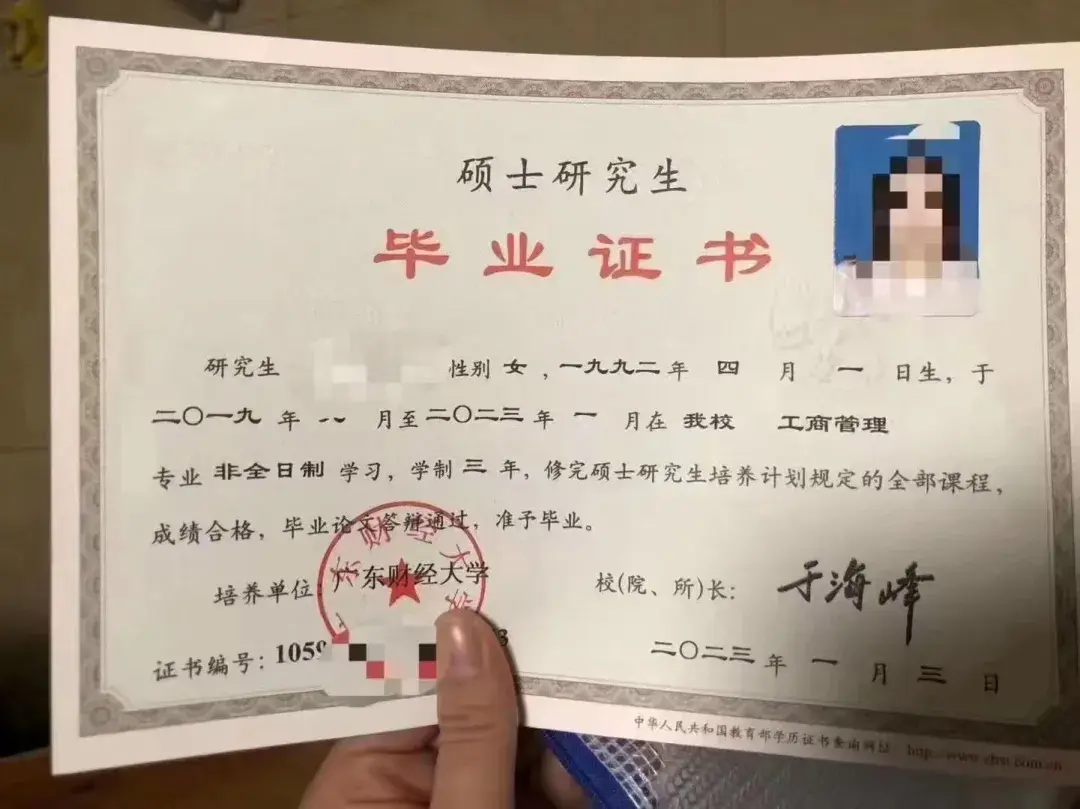 硕士研究生
毕业证书
研究生 性别 女 ，一九九二 年 四 月 一 日生，于
二〇一九 年 月至 二〇二三 年 一 月在 我校 工商管理
专业 非全日制 学习，学制 三 年，修完硕士研究生培养计划规定的全部课程，
成绩合格，毕业论文答辩通过，准予毕业。
培养单位：广东财经大学 校(院、所)长： 于海峰
证书编号：1059 3
二〇二三 年 一 月 三 日
中华人民共和国教育部学历证书查询网址 http://www.chsi.com.cn